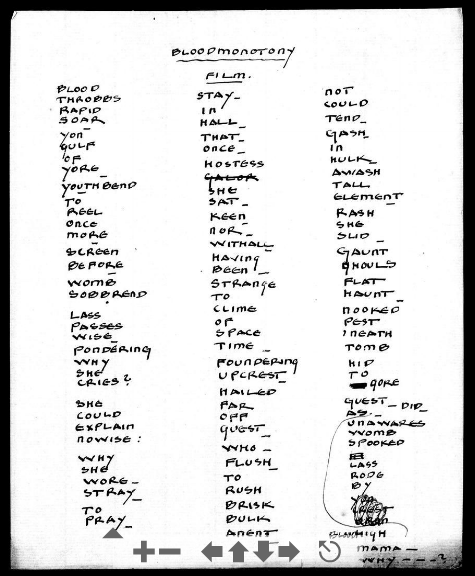 BLOODMONOTONY
FILM.
BLOOD
THROBBS
RAPID
SOAR_
yon
GULF
OF
YORE_
YOUTHBEND
TO
REEL
ONCE
MORE
SCREEN
BEFORE
WOMB
SOBBREND
LASS
PASSES
WISE_
PONDERING
WHY
SHE
CRIES?
SHE
COULD
EXPLAIN
NOWISE:
WHY
SHE
WORE_
STRAY_
TO
PRAY_
STAY_
IN
HALL_
THAT_
ONCE_
HOSTESS
GALOR
SHE
SAT_
KEEN
NOR_
WITHALL
HAVING
BEEN_
STRANGE
TO
CLIME
OF
SPACE
TIME_
FOUNDERING
UPCREST_
HAILED
FAR
OFF
QUEST_
WHO_
FLUSH_
TO
RUSH
BRISK
BULK
NOT
COULD
TEND_
GASH_
IN
HULK_
AWASH
TALL
ELEMENT
RASH
SHE
SLID_
GAUNT
GHOULS
FLAT
HAUNT_
HOOKED
PEST
'NEATH
TOMB
HID
TO
GORE
GUEST_DID_
AS._
UNAWARES
WOMB
SPOOKED
LASS
RODE
BY
HIGH
MAMA_
WHY_ _ _?